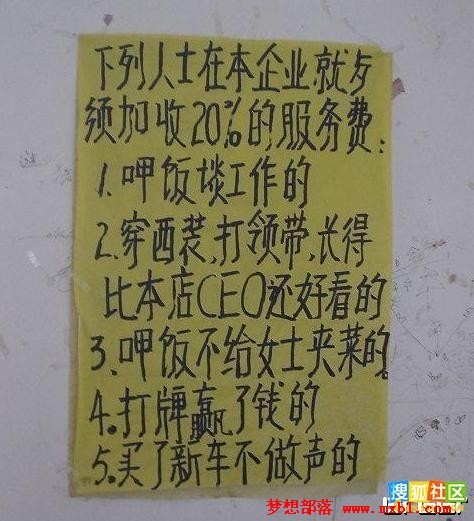 下列人士在本企业就歺
须加收20%的服务费:
1.呷饭谈工作的
2.穿西装,打领带,长得
比本店CEO还好看的
3.呷饭不给女士夹菜的。
4.打牌赢了钱的
5.买了新车不做声的
搜狐社区
梦想部落 www.mxb1.com